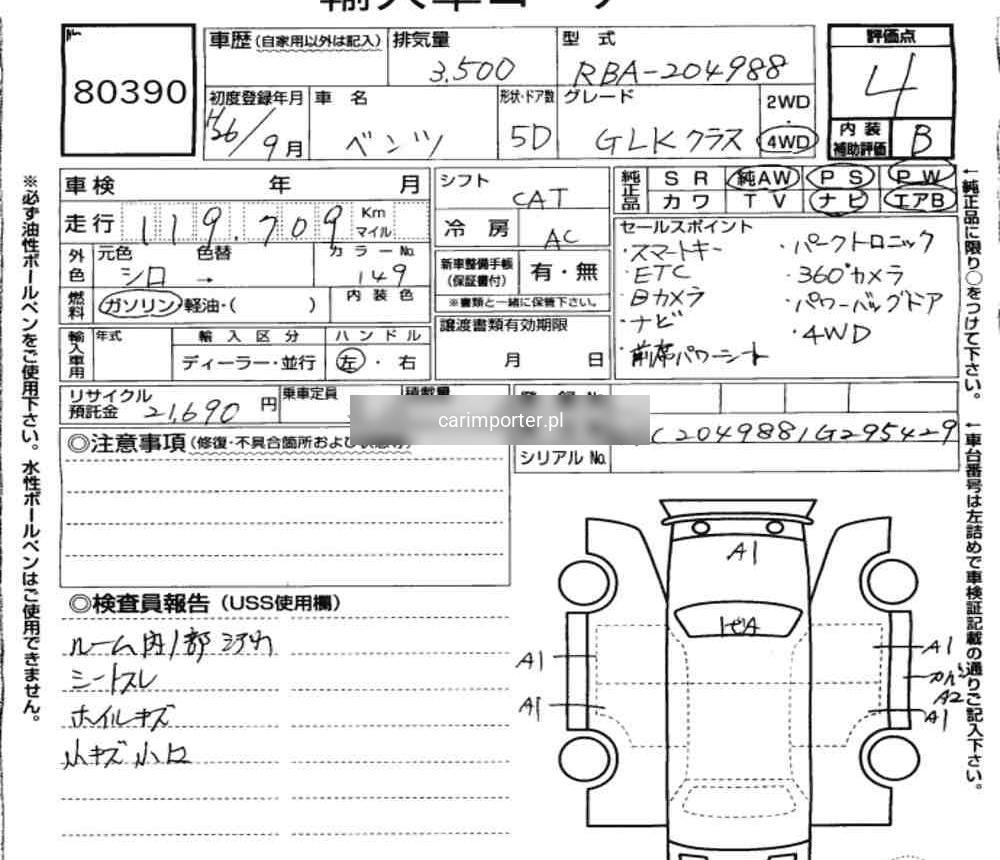 輸入車コーナー
80390
車歴(自家用以外は記入) 排気量 3.500 型式 RBA-204988
初度登録年月 H26/9月 車名 ベンツ 形状・ドア数 5D グレード GLKクラス 2WD・4WD
評価点 4
内装補助評価 B
車検 年 月
走行 119.709 Km マイル
外色 元色 シロ → 色替 カラーNo. 149
燃料 ガソリン・軽油・( ) 内装色
輸入車用 年式 輸入区分 ディーラー・並行 ハンドル 左・右
リサイクル預託金 21,690円 乗車定員 積載量
シフト CAT
冷房 AC
新車整備手帳(保証書付) 有・無
※書類と一緒に保管下さい。
譲渡書類有効期限
月 日
純正品 SR 純AW PS PW
カワ TV ナビ エアB
セールスポイント
・スマートキー ・パークトロニック
・ETC ・360°カメラ
・Bカメラ ・パワーバックドア
・ナビ ・4WD
・前席パワーシート
carimporter.pl
C2049881G295429
シリアルNo.
◎注意事項
◎検査員報告(USS使用欄)
ルーム内1部シワ
シートスレ
ホイルキズ
小キズ小凹
A1
A1
A1
A1
A2
A1
※必ず油性ボールペンをご使用下さい。水性ボールペンはご使用できません。
↑純正品に限り○をつけて下さい。
↑車台番号は左詰めで車検証記載の通りご記入下さい。